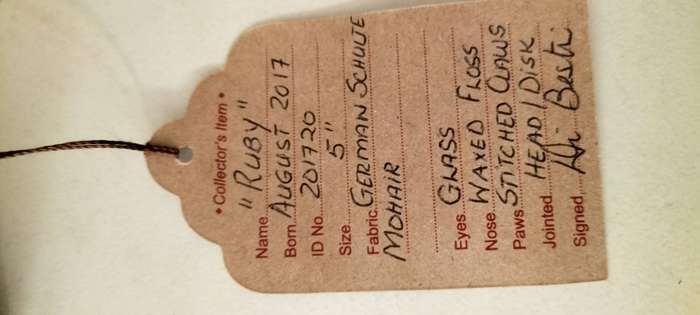 • Collector's Item •
Name "RUBY"
Born AUGUST 2017
ID No. 201720
Size 5"
Fabric GERMAN SCHULTE
MOHAIR
Eyes GLASS
Nose WAXED FLOSS
Paws STITCHED CLAWS
Jointed HEAD / DISK
Signed